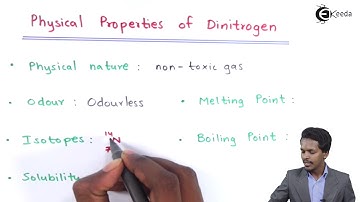 Physical Properties of Dinitrogen
Ekeeda
• Physical nature : non-toxic gas
• Odour : Odourless
• Melting Point :
• Isotopes : ¹⁴₇N
• Boiling Point :
• Solubility